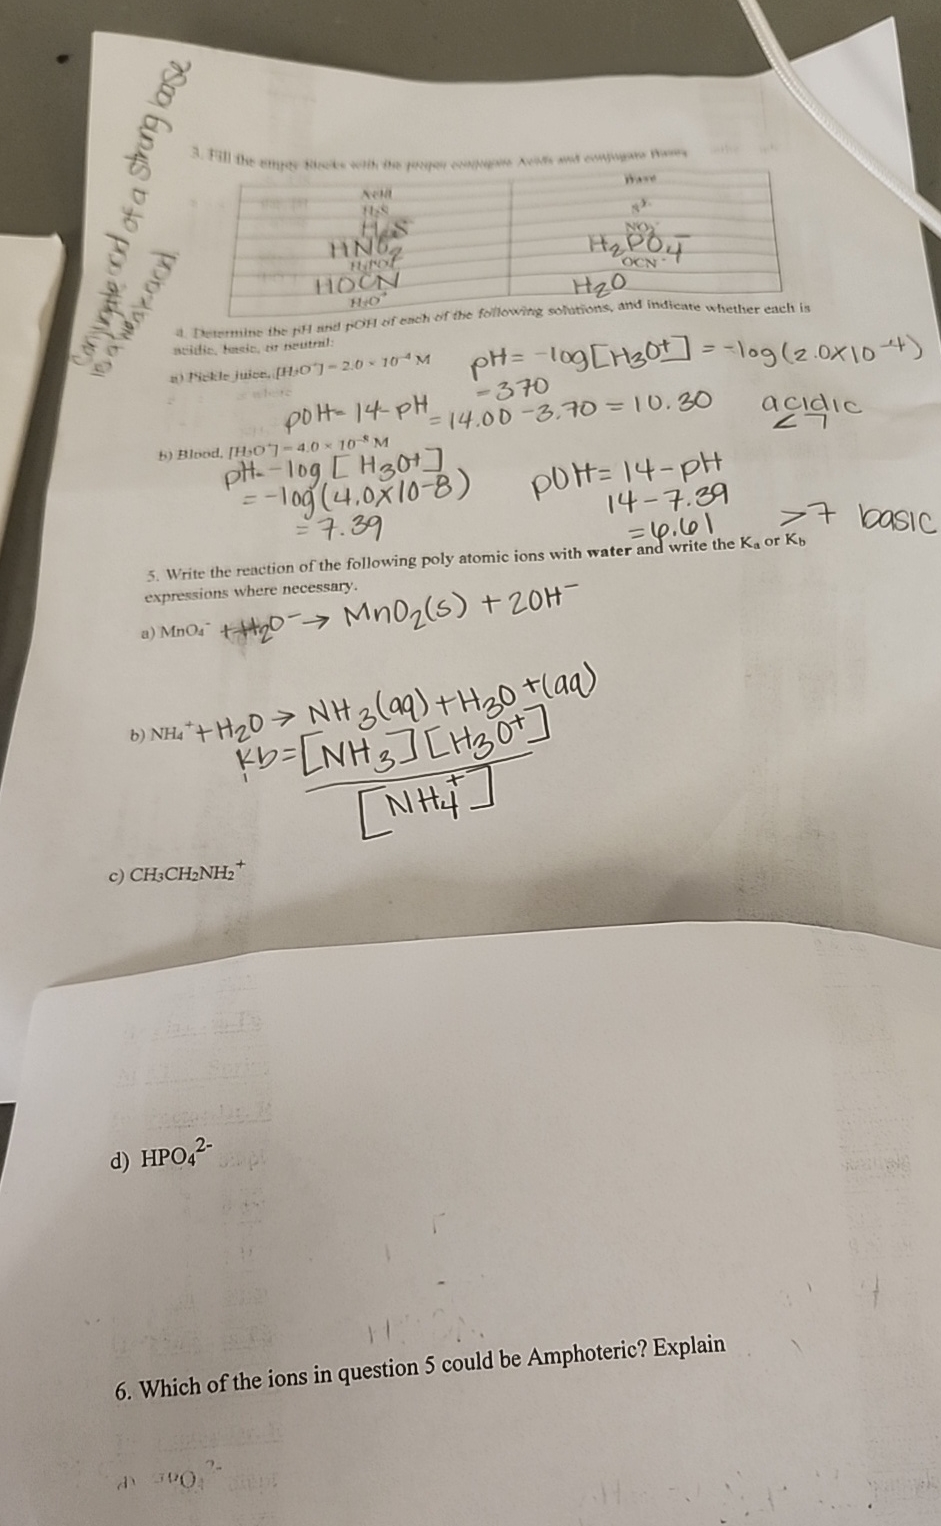 Conjugate acid of a strong base
is a weak acid
3. Fill the empty blocks with the proper conjugate Acids and conjugate Bases
Acid Base
H₂S
S²⁻
H₂S
NO₂⁻
HNO₂ H₂PO₄⁻
H₃PO₄ OCN⁻
HOCN H₂O
H₃O⁺
4. Determine the pH and pOH of each of the following solutions, and indicate whether each is
acidic, basic, or neutral:
a) Pickle juice, [H₃O⁺] = 2.0 × 10⁻⁴ M pH = -log[H₃O+] = -log(2.0x10⁻⁴)
=370
pOH= 14-pH = 14.00 - 3.70 = 10.30 acidic
<7
b) Blood, [H₃O⁺] = 4.0 × 10⁻⁸ M
pH= -log [H₃O+] pOH= 14-pH
= -log(4.0x10-8) 14-7.39
= 7.39 = 6.61 >7 basic
5. Write the reaction of the following poly atomic ions with water and write the Kₐ or K_b
expressions where necessary.
a) MnO₄⁻ + H₂O⁻ → MnO₂(s) + 2OH⁻
b) NH₄⁺ + H₂O → NH₃(aq) + H₃O+(aq)
Kb = [NH₃][H₃O⁺]
[NH₄⁺]
c) CH₃CH₂NH₂⁺
d) HPO₄²⁻
6. Which of the ions in question 5 could be Amphoteric? Explain